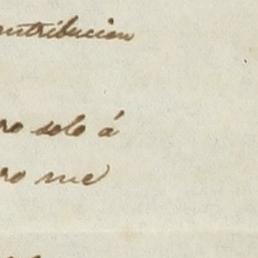 ontribucion
ro solo á
ro me